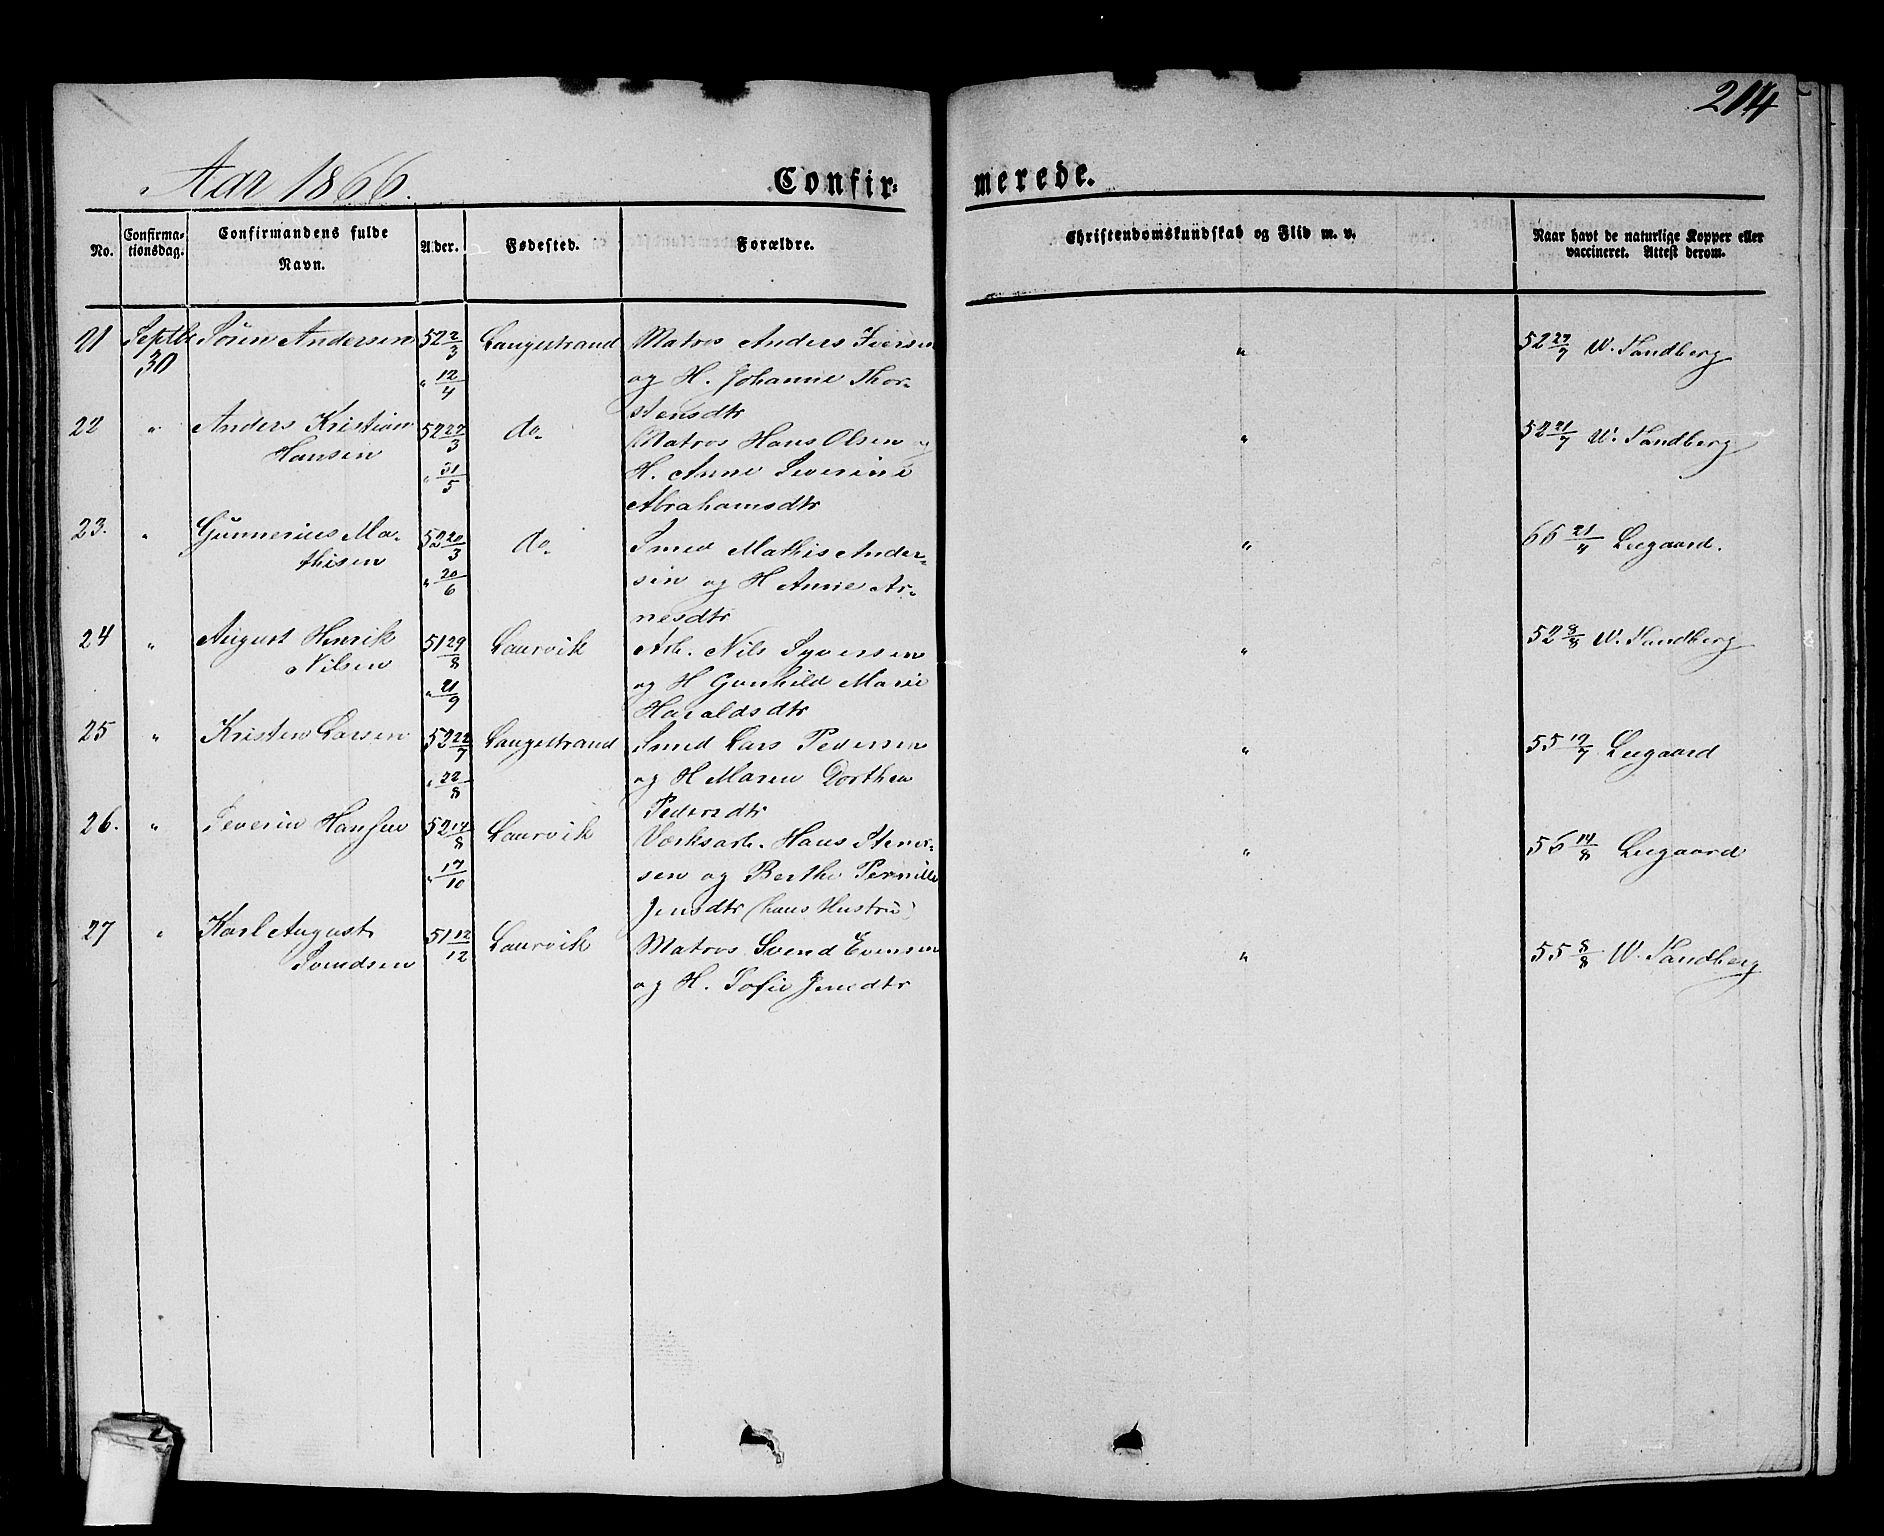 214
Aar 1866.
Confir-
merede.
No. Confirma-tionsdag. Confirmandens fulde Navn. Alder. Fødested. Forældre. Christendomskundskab og Flid m. v. Naar havt de naturlige Kopper eller vaccineret. Attest derom.
21 Septbr 30 Sören Andersen 52 2/3 Langestrand Matros Anders Iversen " 52 27/7 W. Sandberg
" 12/4 og H. Johanne Thor-
stensdtr
22 " Anders Kristian 52 27/3 do. Matros Hans Olsen og " 52 21/7 W. Sandberg
Hansen " 31/5 H. Anne Severine
Abrahamsdtr
23. " Gunnerius Ma- 52 20/3 do. Smed Mathis Ander- " 66 21/4 Leegaard.
thisen " 20/6 sen og H Anne Ar-
nesdtr
24 " August Henrik 51 29/8 Laurvik Arb. Nils Syversen " 52 8/8 W. Sandberg
Nilsen " 21/9 og H Gunhild Marie
Haraldsdtr
25 " Kristen Larsen 52 22/7 Langestrand Smed Lars Pedersen " 55 19/7 Leegaard
" 22/8 og H Maren Dorthea
Pedersdtr
26. " Severin Hansen 52 14/8 Laurvik Værksarb. Hans Stener- " 56 14/8 Leegaard
" 17/10 sen og Berthe Pernille
Jensdtr (hans Hustru)
27 " Karl August 51 12/12 Laurvik Matros Svend Evensen " 55 8/8 W. Sandberg
Svendsen og H. Sofie Jensdtr